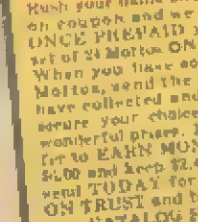 Rush your name and
on coupon and we
ONCE PREPAID
set of 24 Mottos ON
When you have
Mottos, send the
have collected and
secure your choice
wonderful prizes.
fer to EARN MON
$6.00 and keep
send TODAY for
ON TRUST and
CATALOG